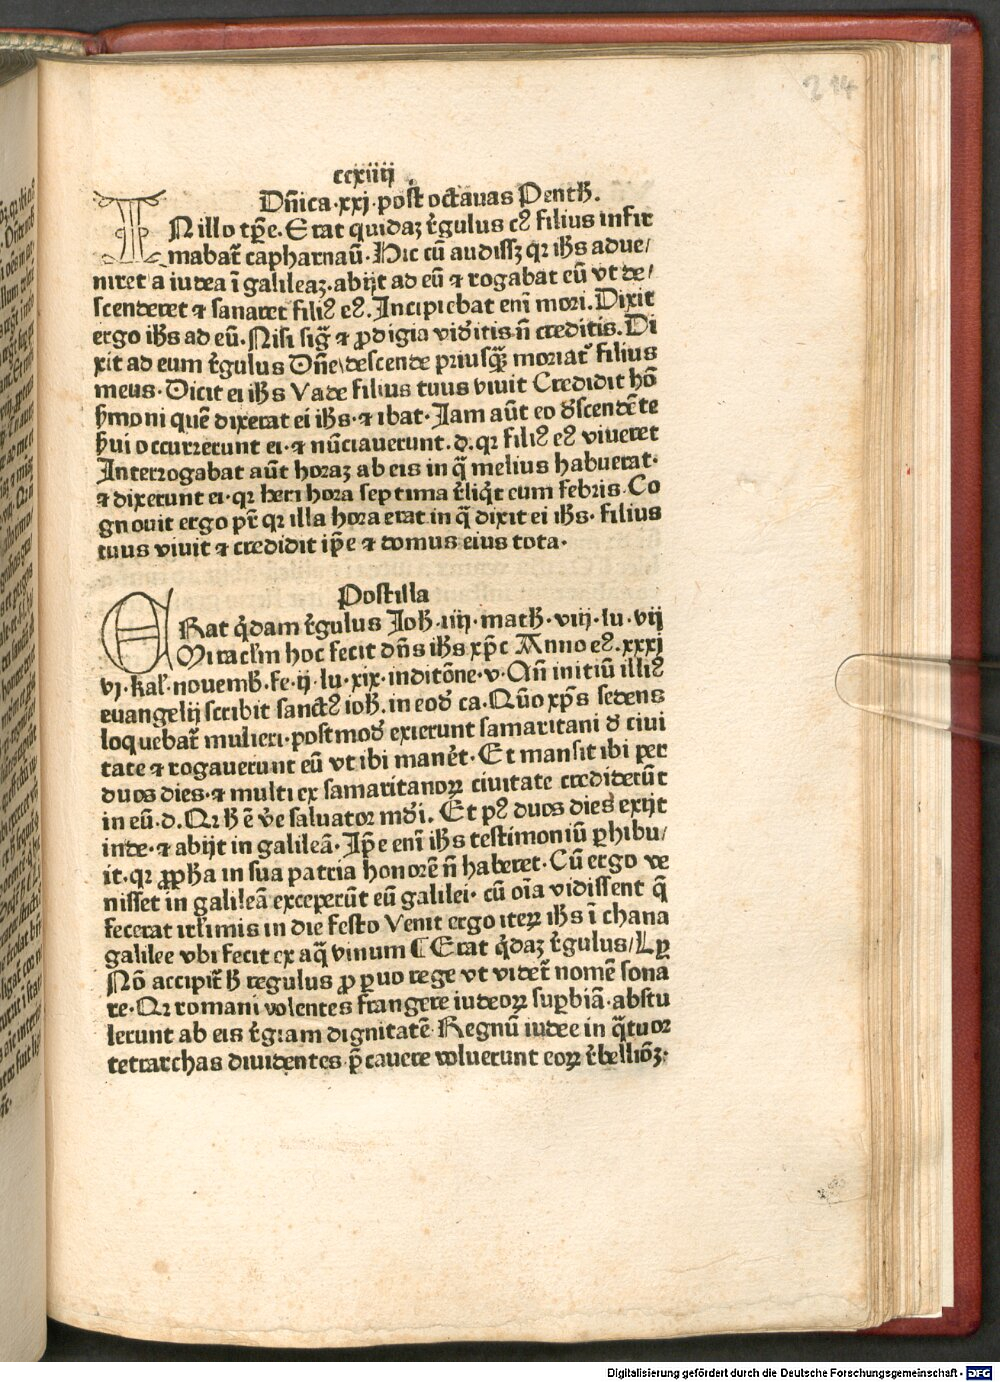 214
ccxiiij
Dn̄ica·xxj·post octauas Pentħ.
IN illo tꝑe. Erat quidaʒ rͤgulus cꝰ filius infir
mabat᷑ capharnaū. Hic cū audissʒ qꝛ ih̄s adue/
niret a iudea ī galileaʒ. abijt ad eū ⁊ rogabat eū vt de/
scenderet ⁊ sanaret filiꝰ eꝰ. Incipiebat enī mori. Dixit
ergo ih̄s ad eū. Nisi sig̃ ⁊ ꝓdigia viđitis n̄ creditis. Di
xit ad eum rͤgulus Dn̄e/descende priusq̃ʒ moriat᷑ filius
meus. Dicit ei ih̄s Vade filius tuus viuit Credidit hō
ẜmoni quē dixerat ei ih̄s. ⁊ ibat. Jam aūt eo đscendēte
ẜui occurrerunt ei. ⁊ nūciauerunt. đ. qꝛ filiꝰ eꝰ viueret
Interrogabat aūt horaʒ ab eis in q̃ melius habuerat.
⁊ dixerunt ei. qꝛ heri hora septima rͤliq̇t eum febris. Co
gnouit ergo pr̄ qꝛ illa hora erat in q̃ dixit ei ih̄s. filius
tuus viuit ⁊ credidit ip̄e ⁊ domus eius tota.
Postilla
ERat q̇dam rͤgulus Joħ. iiij. matħ. viij. lu. vij
Miracl̄m hoc fecit dn̄s ih̄s xp̄c Anno eꝰ. xxxj
vj. kal̄. nouemƀ. fe. ij. lu. xix. inditōne. v. Qn̄ initiū illiꝰ
euangelij scribit sanctꝰ ioħ. in eođ ca. Qūo xp̄s sedens
loquebat᷑ mulieri. postmođ exierunt samaritani đ ciui
tate ⁊ rogauerunt eū vt ibi manēt. Et mansit ibi per
duos dies. ⁊ multi ex samaritanoꝝ ciuitate crediderūt
in eū. đ. Qꝛ ħ ē v̄e saluator mđi. Et pꝰ duos dies exijt
inde. ⁊ abijt in galileā. Ip̄e enī ih̄s testimoniū ꝑhibu/
it. qꝛ ꝓpħa in sua patria honorē n̄ haberet. Cū ergo ve
nisset in galileā exceperūt eū galilei. cū oīa vidissent q̃
fecerat irl̄imis in die festo Venit ergo iteꝝ ih̄s ī chana
galilee vbi fecit ex aq̃ vinum ¶ Erat q̇daʒ rͤgulus/Lꝝ
Nō accipit᷑ ħ regulus ꝓ ꝑuo rege vt videt᷑ nomē sona
re. Qꝛ romani volentes frangere iudeoꝝ suꝑbiā. abstu
lerunt ab eis rͤgiam dignitatē Regnū iudee in q̃tuor
tetrarchas diuidentes. p̄cauere voluerunt eoꝝ rͤbelliōʒ.
Digitalisierung gefördert durch die Deutsche Forschungsgemeinschaft - DFG